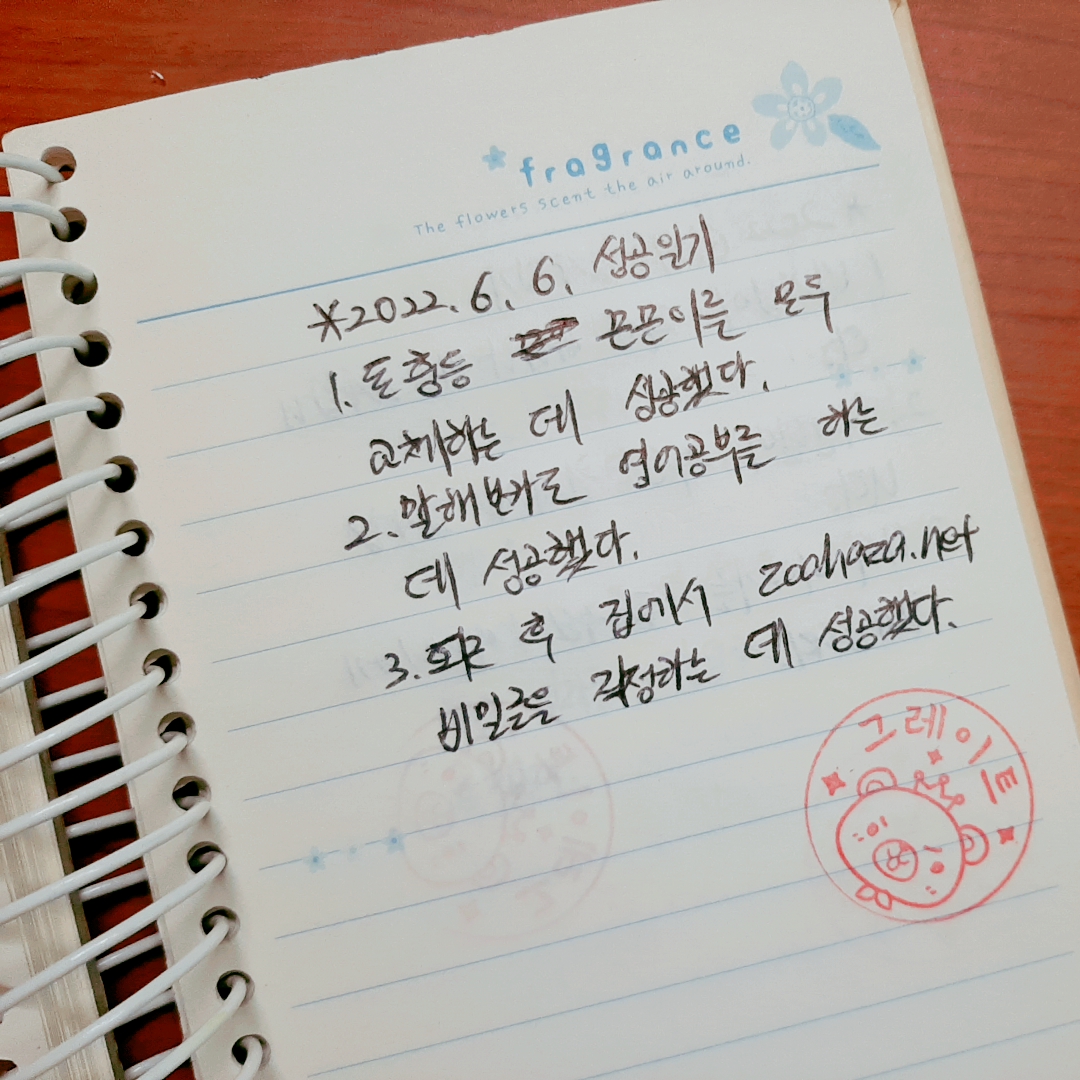 fragrance
The flowers scent the air around.
※2022. 6. 6. 성공일기
1. 돈흥등 끈끈이를 모두
교체하는 데 성공했다.
2. 말해보카로 영어공부를 하는
데 성공했다.
3. 퇴근 후 집에서 zoohaza.net
비밀글을 작성하는 데 성공했다.
그레이트